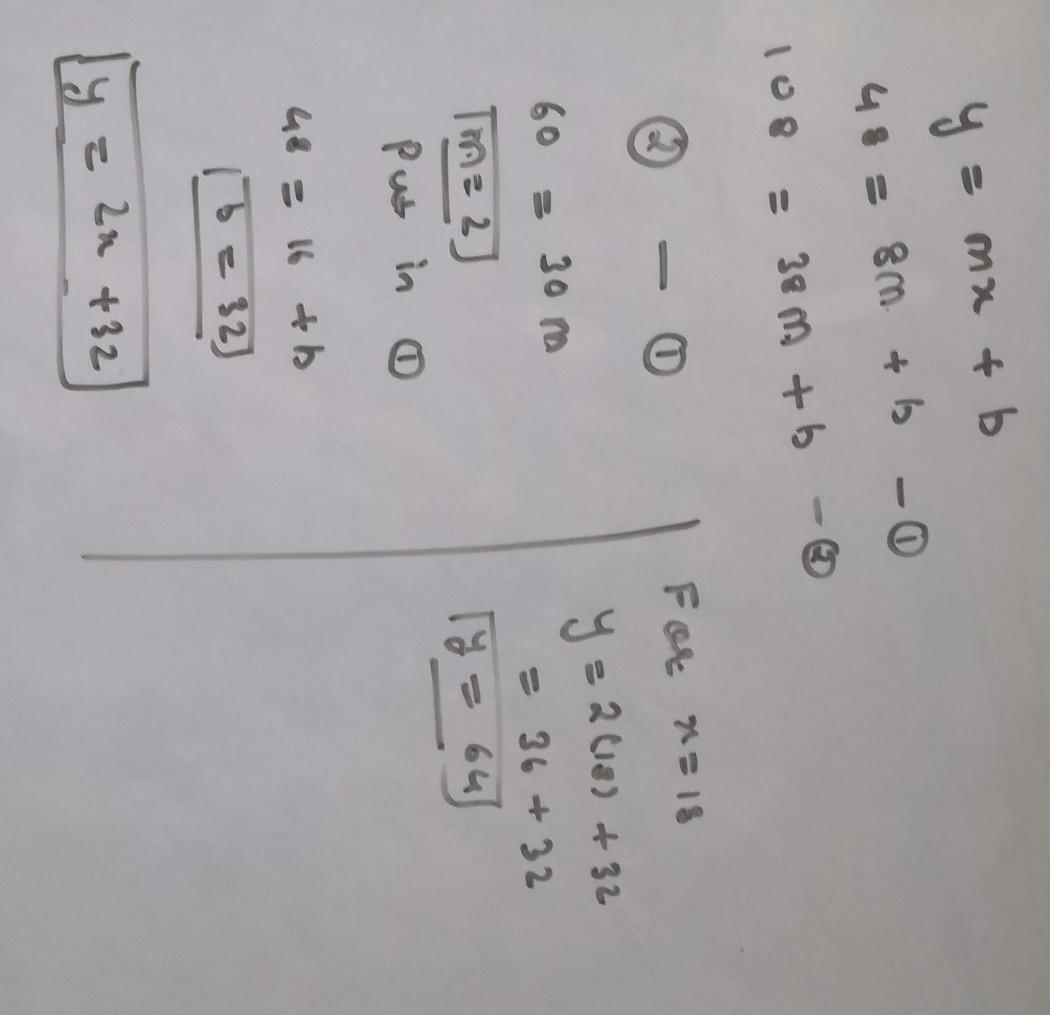 y = mx + b
48 = 8m + b - ①
108 = 38m + b - ②
② - ①
60 = 30m
m = 2
Put in ①
48 = 16 + b
b = 32
y = 2x + 32
For x = 18
y = 2(18) + 32
= 36 + 32
y = 64